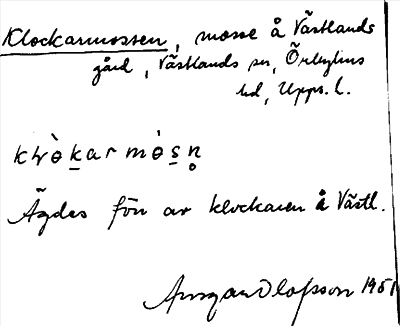 Klockarmossen, mosse å Västlands
gård, Västlands sn, Örbyhus
hd, Upps. l.
Ägdes förr av klockaren å Västl.
Olofsson 1951